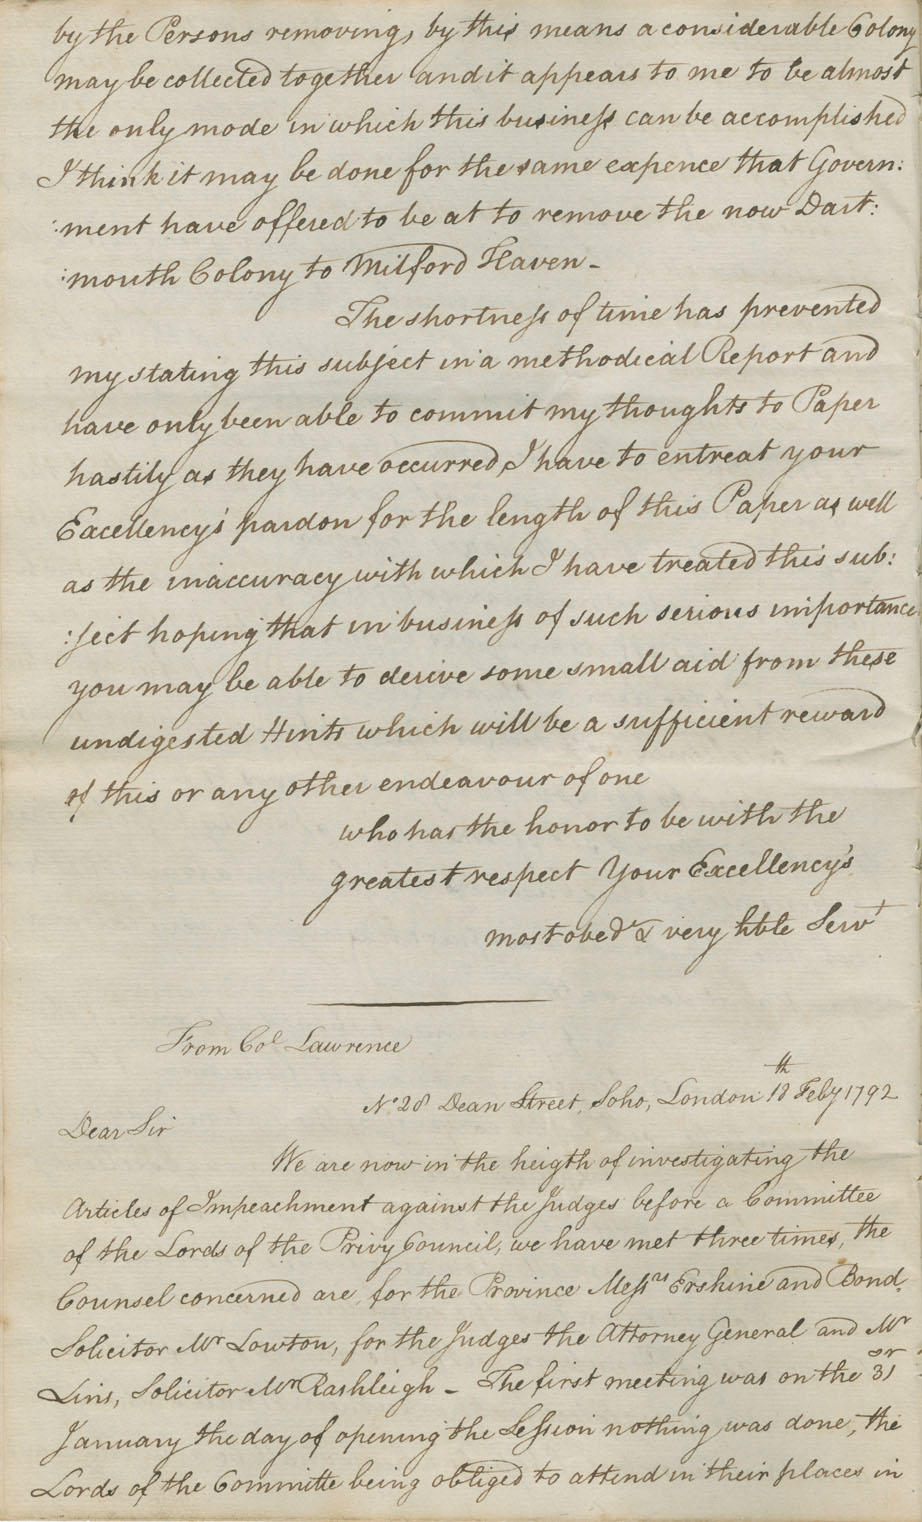 by the Persons removing, by this means a considerable Colony
may be collected together and it appears to me to be almost
the only mode in which this business can be accomplished
I think it may be done for the same expence that Govern:
:ment have offered to be at to remove the now Dart:
:mouth Colony to Milford Haven –
The shortness of time has prevented
my stating this subject in a methodical Report and
have only been able to commit my thoughts to Paper
hastily as they have occurred, I have to entreat your
Excellency's pardon for the length of this Paper as well
as the inaccuracy with which I have treated this sub:
:ject hoping that in business of such serious importance
you may be able to derive some small aid from these
undigested Hints which will be a sufficient reward
of this or any other endeavour of one
who has the honor to be with the
greatest respect Your Excellency's
most obedt & very hble Servt
From Col Lawrence
No 28 Dean Street, Soho, London 18th Feby 1792
Dear Sir
We are now in the heigth of investigating the
Articles of Impeachment against the Judges before a Committee
of the Lords of the Privy Council, we have met three times, the
Counsel concerned are, for the Province Messrs Erskine and Bond,
Solicitor Mr Lowton, for the Judges the Attorney General and Mr
Lins, Solicitor Mr Rashleigh – The first meeting was on the 31st
January the day of opening the Session nothing was done, the
Lords of the Committe being obliged to attend in their places in